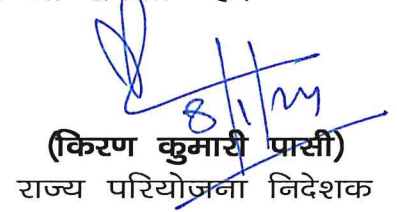 8/1/24
(किरण कुमारी पासी)
राज्य परियोजना निदेशक